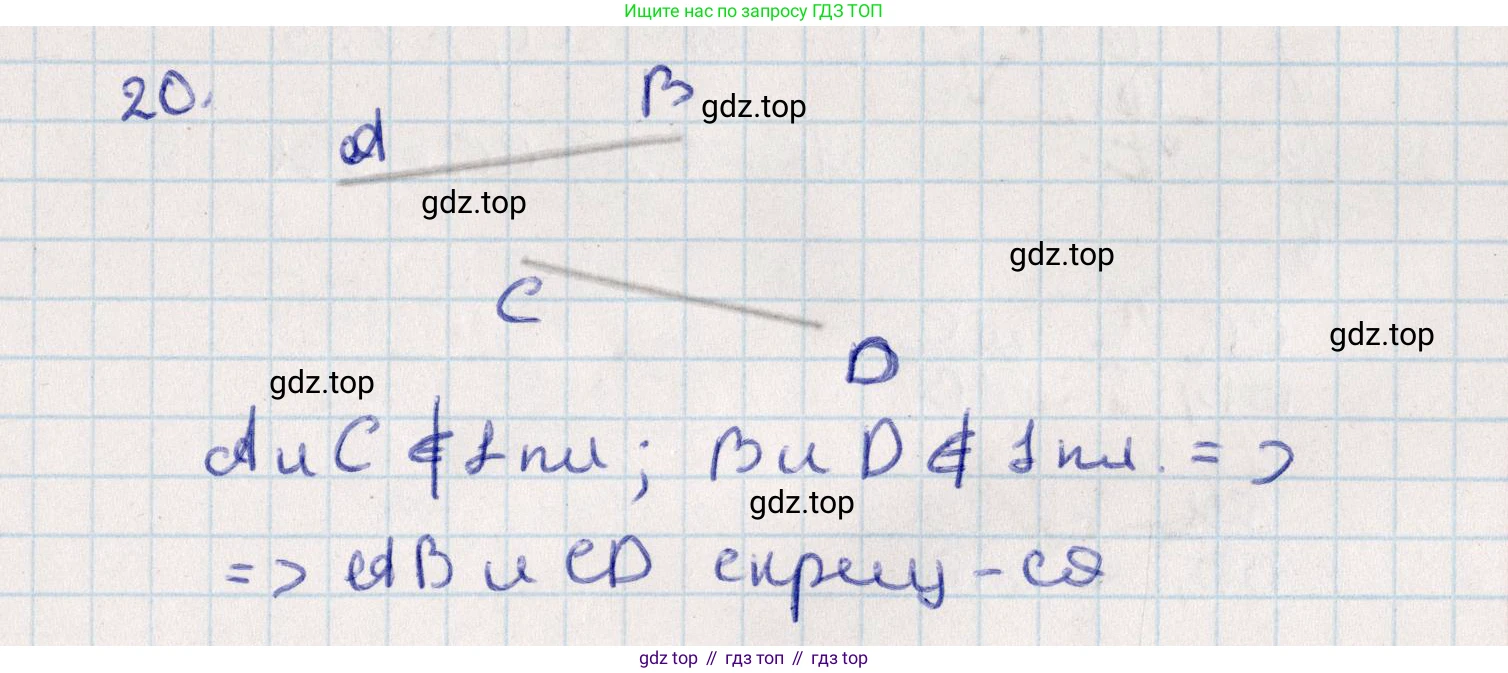 Ищите нас по запросу ГДЗ ТОП
20.
B gdz.top
A
gdz.top
gdz.top
C
gdz.top
D
gdz.top
A и C ∉ 1 пл ; B и D ∉ 1 пл. =>
gdz.top
=> AB и CD скрещ-ся
gdz top // гдз топ // гдз top